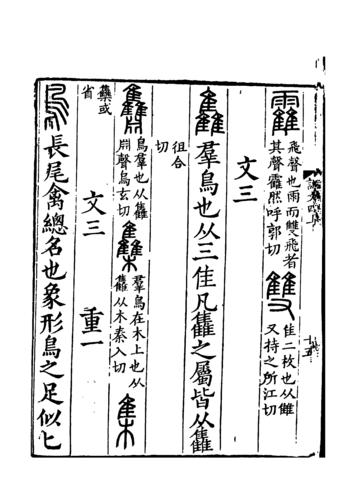 靃飛聲也雨而雙飛者其聲靃然呼郭切雙隹二枚也从雔又持之所江切
文三
雥羣鳥也从三隹凡雥之屬皆从雥
徂合切
鳥羣也从雥𣶒聲烏玄切雧羣鳥在木上也从雥从木秦入切集
雧或省
文三 重一
鳥長尾禽總名也象形鳥之足似匕